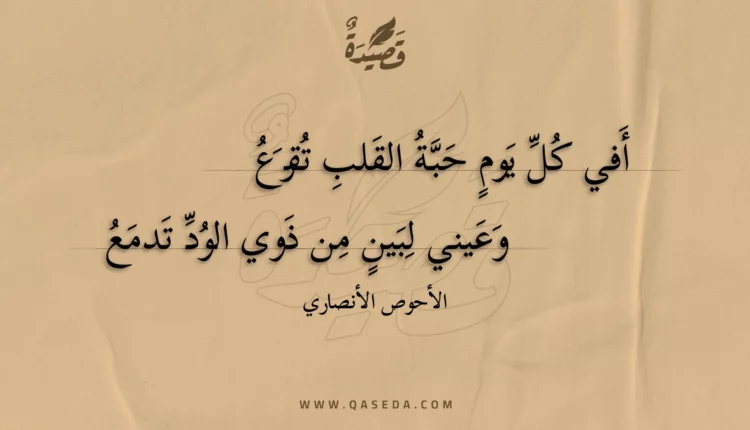 قَصِيدَةٌ
أَفي كُلِّ يَومٍ حَبَّةُ القَلبِ تُقرَعُ
وَعَيني لِبَينٍ مِن ذَوي الوُدِّ تَدمَعُ
الأحوص الأنصاري
WWW.QASEDA.COM